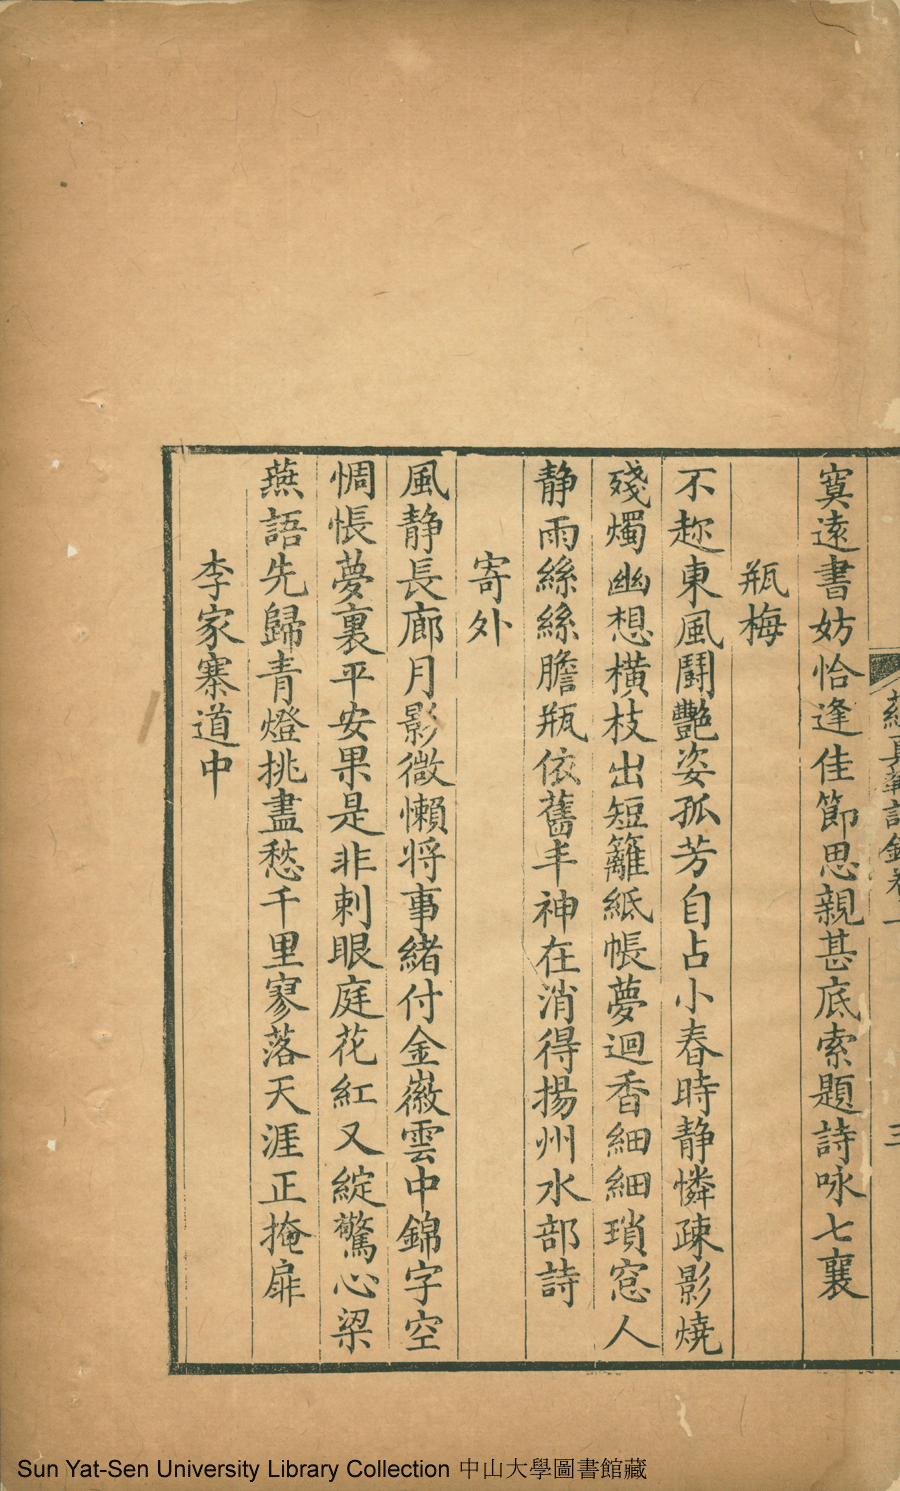 寞遠書妨恰逢佳節思親甚底索題詩咏七襄
瓶梅
不趂東風鬪艷姿孤芳自占小春時静憐疎影燒
殘燭幽想橫枝出短籬紙帳夢迴香細細瑣窓人
静雨絲絲膽瓶依舊丰神在消得揚州水部詩
寄外
風静長廊月影微懶将事緒付金徽雲中錦字空
惆悵夢裏平安果是非刺眼庭花紅又綻驚心梁
燕語先歸青燈挑盡愁千里寥落天涯正掩扉
李家寨道中
三
Sun Yat-Sen University Library Collection 中山大學圖書館藏